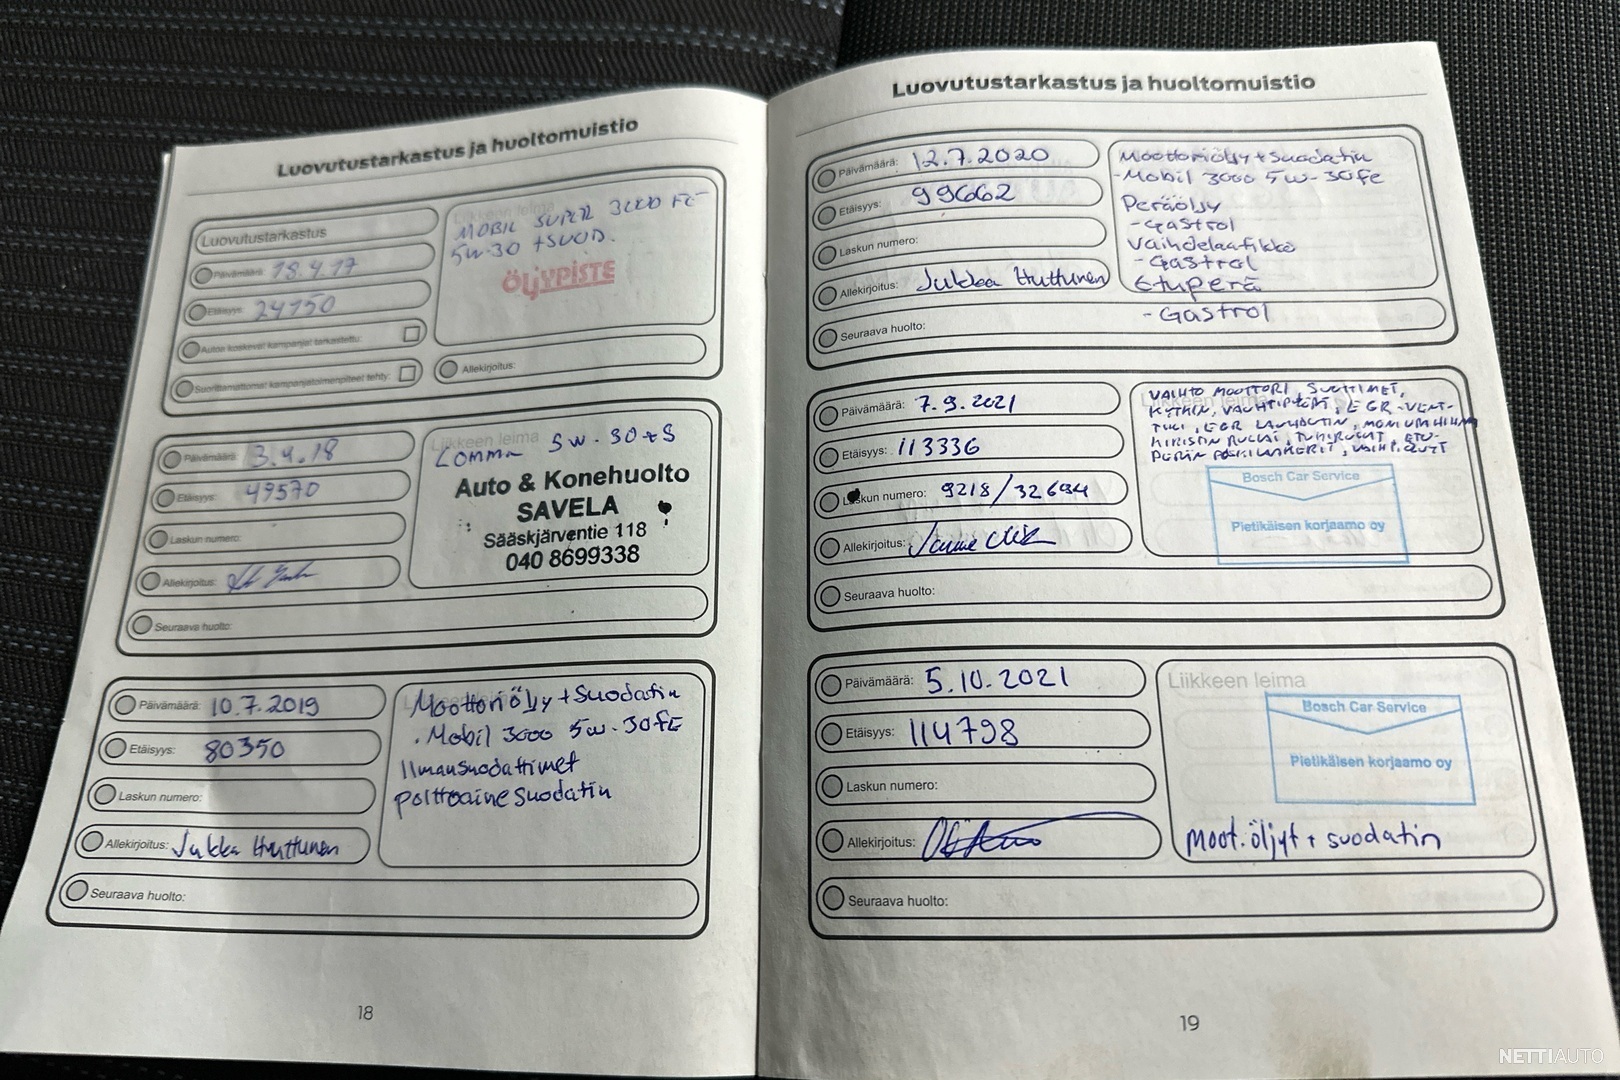 Luovutustarkastus ja huoltomuistio
Luovutustarkastus
Päivämäärä: 18.4.17
Etäisyys: 24750
Autoa koskevat kampanjat tarkastettu:
Suorittamattomat kampanjatoimenpiteet tehty:
Liikkeen leima
MOBIL SUPER 3000 FE
5W-30 + SUOD.
ÖLJYPISTE
Allekirjoitus:
Päivämäärä: 3.4.18
Etäisyys: 49570
Laskun numero:
Allekirjoitus:
Seuraava huolto:
Liikkeen leima 5W-30+S
COMMA
Auto & Konehuolto
SAVELA
Sääskjärventie 118
040 8699338
Päivämäärä: 10.7.2019
Etäisyys: 80350
Laskun numero:
Allekirjoitus: Jukka Huttunen
Seuraava huolto:
Moottoriöljy + Suodatin
. Mobil 3000 5w-30FE
Ilmansuodattimet
polttoainesuodatin
18
Luovutustarkastus ja huoltomuistio
Päivämäärä: 12.7.2020
Etäisyys: 99662
Laskun numero:
Allekirjoitus: Jukka Huttunen
Seuraava huolto:
Moottoriöljy + suodatin
-Mobil 3000 5w-30FE
Peräöljy
-Gastrol
Vaihdelaatikko
-Gastrol
Etuperä
-Gastrol
Päivämäärä: 7.9.2021
Etäisyys: 113336
Laskun numero: 9218/32694
Allekirjoitus:
Seuraava huolto:
Liikkeen leima
VAIHTO MOOTTORI, SUUTTIMET,
KYTKIN, VAUHTIPYÖRÄ, EGR-VENT-
TIILI, EGR LAUHDUTIN, MONIURAHIHNA
KIRISTIN RULLAT, TUKIRULLAT, ETU-
Bosch Car Service
Pietikäisen korjaamo oy
Päivämäärä: 5.10.2021
Etäisyys: 114798
Laskun numero:
Allekirjoitus:
Seuraava huolto:
Liikkeen leima
Bosch Car Service
Pietikäisen korjaamo oy
Moot.öljyt + suodatin
19
NETTIAUTO